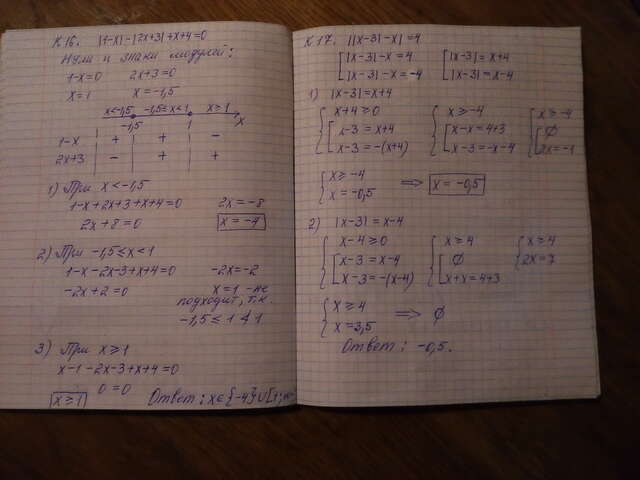 К 16. |1-x|-|2x+3|+x+4=0
Нули и знаки модулей:
1-x=0 2x+3=0
x=1 x=-1,5
x<-1,5 -1,5≤x<1 x≥1
-1,5 1 x
1-x + + -
2x+3 - + +
1) При x<-1,5
1-x+2x+3+x+4=0 2x=-8
2x+8=0 x=-4
2) При -1,5≤x<1
1-x-2x-3+x+4=0 -2x=-2
-2x+2=0 x=1 -не
подходит, т.к.
-1,5≤1≮1
3) При x≥1
x-1-2x-3+x+4=0
0=0
x≥1 Ответ: x∈{-4}∪[1;∞
К 17. ||x-3|-x|=4
|x-3|-x=4 |x-3|=x+4
|x-3|-x=-4 |x-3|=x-4
1) |x-3|=x+4
x+4≥0 x≥-4 x≥-4
x-3=x+4 x-x=4+3 ∅
x-3=-(x+4) x-3=-x-4 2x=-1
x≥-4
x=-0,5 ⟹ x=-0,5
2) |x-3|=x-4
x-4≥0 x≥4 x≥4
x-3=x-4 ∅ 2x=7
x-3=-(x-4) x+x=4+3
x≥4
x=3,5 ⟹ ∅
Ответ: -0,5.